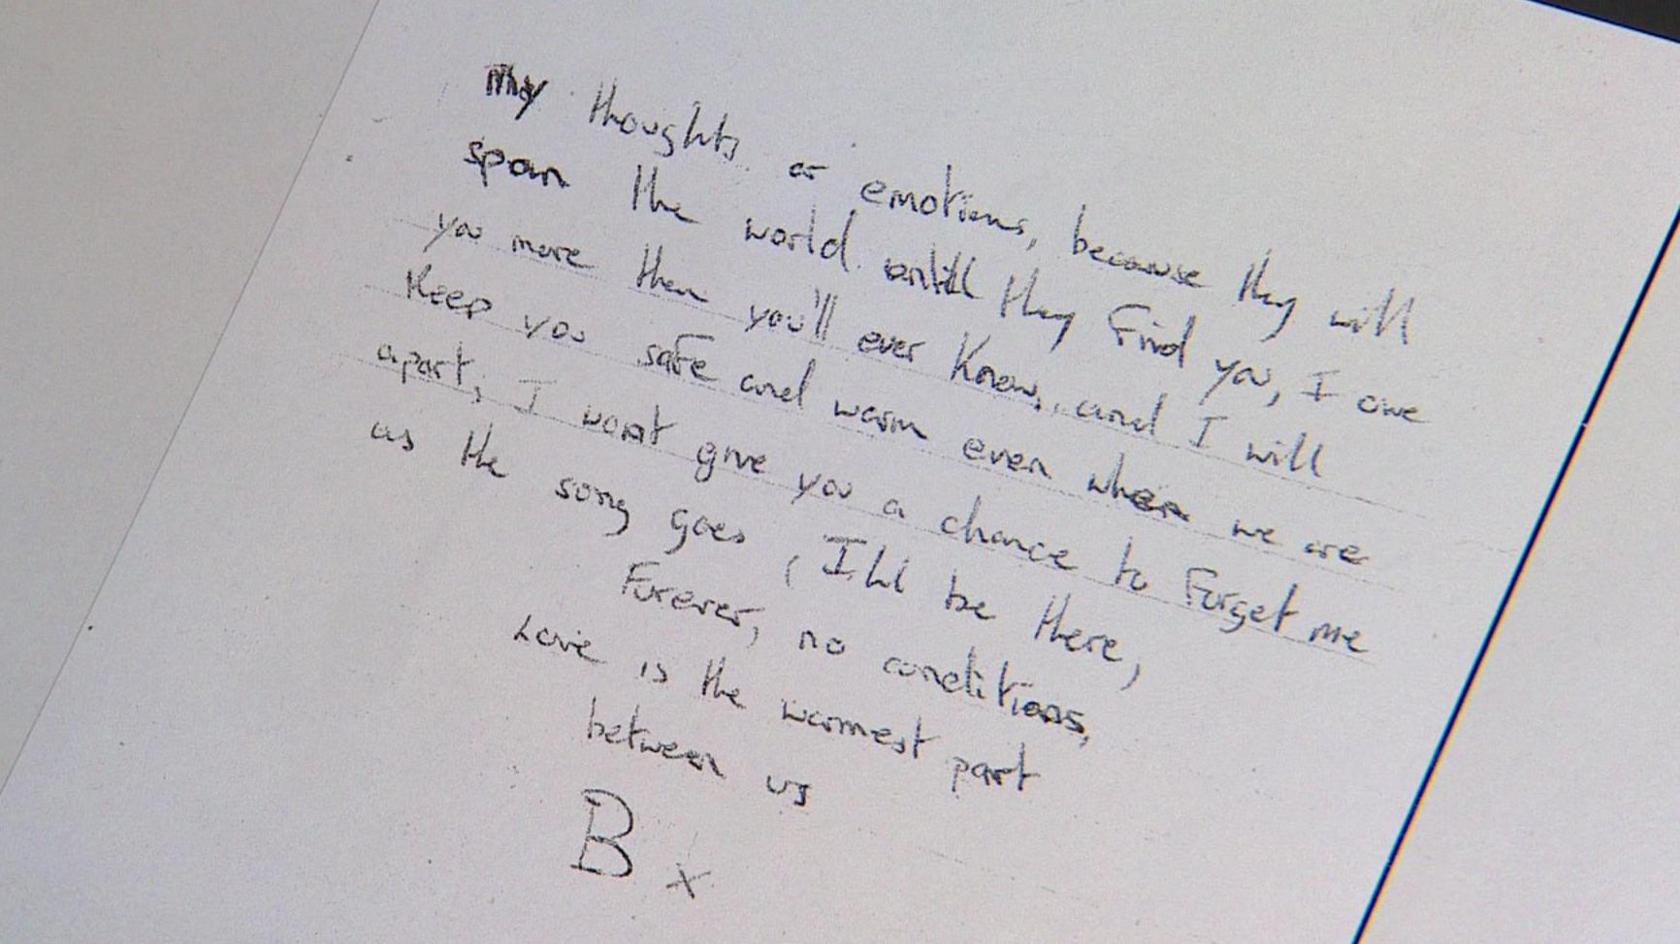 My thoughts or emotions, because they will
span the world until they Find you, I owe
you more then you'll ever Know, and I will
Keep you safe and warm even when we are
apart, I wont give you a chance to Forget me
as the song goes, I'll be there,
Forever, no conditions,
Love is the warmest part
between us
B x